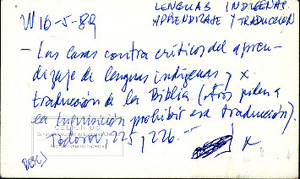 LENGUAS INDIGENAS.
W 16-5-89 APRENDIZAJE Y TRADUCCION
- Las Casas contra críticos del apren-
dizaje de lenguas indígenas y x.
traducción de la Biblia (otros piden a
la Inquisición prohibir esa traducción).
Todorov, 225, 226.-
x